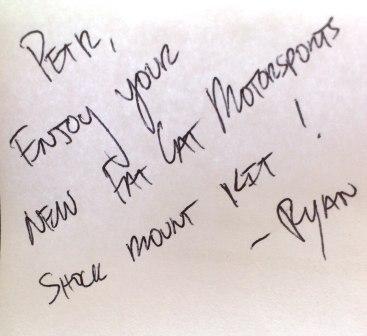 PETR,
ENJOY YOUR
NEW FAT CAT MOTORSPORTS
SHOCK MOUNT KIT !
- RYAN